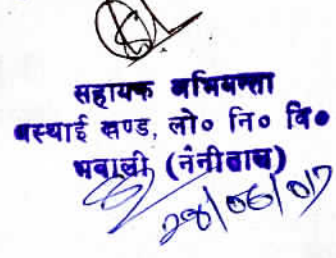 सहायक अभियन्ता
अस्थाई खण्ड, लो० नि० वि०
भवाली (नैनीताल)
28/06/07